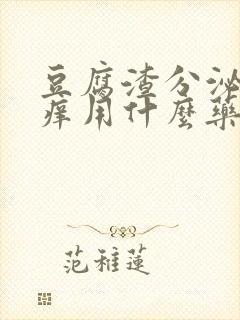 豆腐渣分泌
痒用什麼藥
范稚蓮